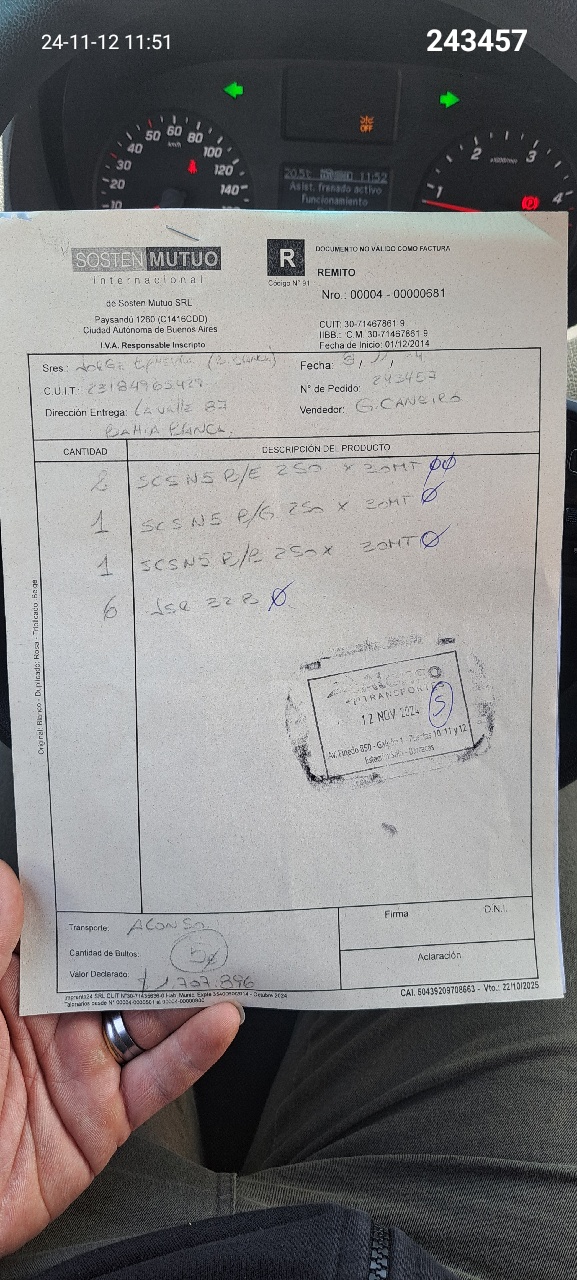 24-11-12 11:51
243457
50 60 80
40 km/h 100
30 120
20 140
10
OFF
20.5°C 11:52
Asist. frenado activo
Funcionamiento
1 2 3 4
SOSTEN MUTUO
internacional
de Sosten Mutuo SRL
Paysandú 1260 (C1416CDD)
Ciudad Autónoma de Buenos Aires
I.V.A. Responsable Inscripto
R
Código N° 91
DOCUMENTO NO VALIDO COMO FACTURA
REMITO
Nro.: 00004 - 00000681
CUIT: 30-71467861 9
IIBB.: C.M. 30-71467861 9
Fecha de Inicio: 01/12/2014
Sres.: JORGE (B. Blanca)
C.U.I.T:
Dirección Entrega: Lavalle 87
BAHIA BLANCA.
Fecha: 8, 11, 24
N° de Pedido: 243457
Vendedor: G. CANEIRO
CANTIDAD DESCRIPCIÓN DEL PRODUCTO
2 SCSN5 R/E 250 x 30MT
1 SCSN5 R/G 250 x 30MT
1 SCSN5 R/B 250 x 30MT
6
TRANSPORTE
12 NOV 2024 5
Original: Blanco - Duplicado: Rosa - Triplicado: Beige
Transporte:
Cantidad de Bultos: 5
Valor Declarado: $ 1.707.896
Firma D.N.I.
Aclaración
CAI. 50439209708663 - Vto.: 22/10/2025